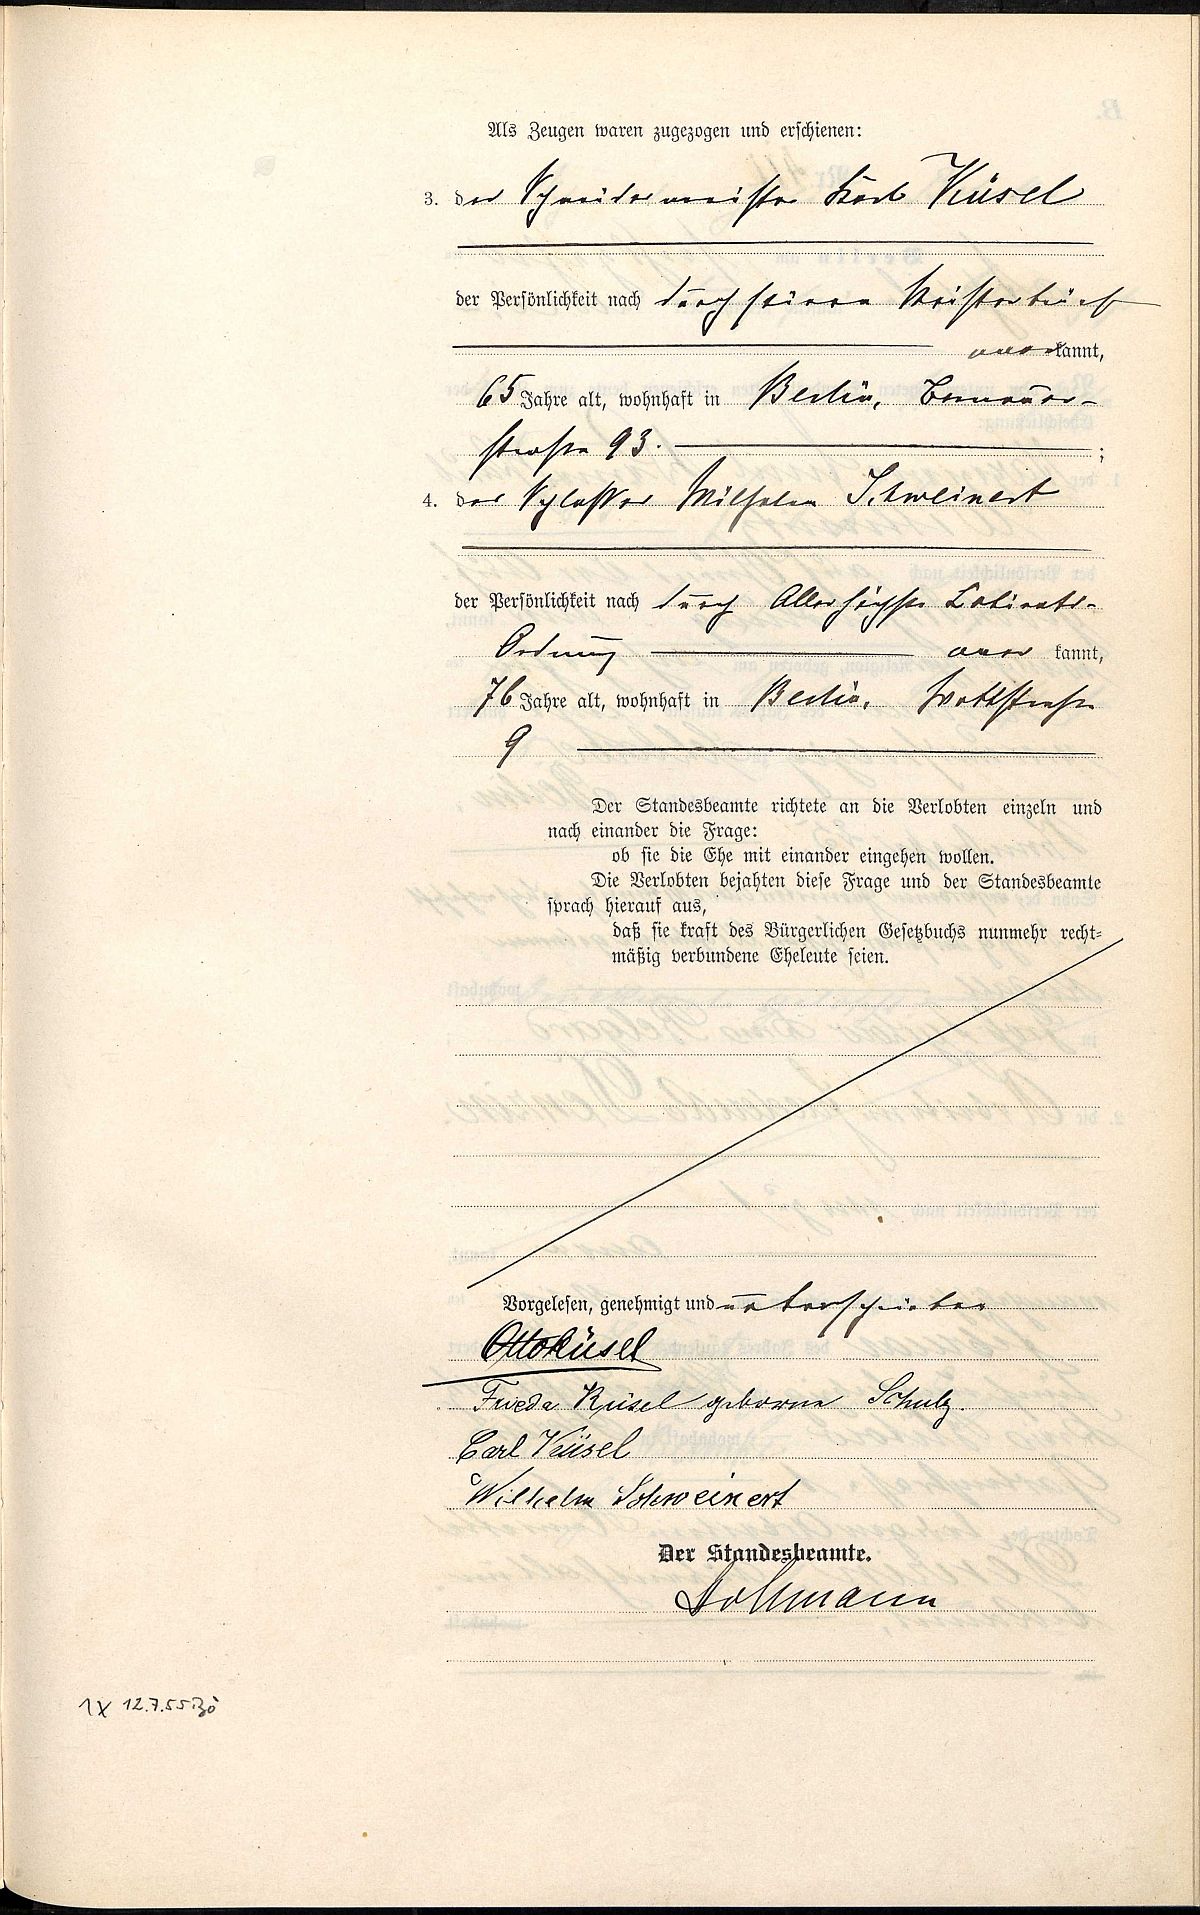 Als Zeugen waren zugezogen und erschienen:
3. der Schneidermeister Karl Küsel
der Persönlichkeit nach durch seinen Meisterbrief
anerkannt,
65 Jahre alt, wohnhaft in Berlin, Bernauer-
strasse 93. ;
4. der Schlosser Wilhelm Schweinert
der Persönlichkeit nach durch Allerhöchste Kabinets-
Ordnung aner kannt,
76 Jahre alt, wohnhaft in Berlin, Wattstrasse
9
Der Standesbeamte richtete an die Verlobten einzeln und
nach einander die Frage:
ob sie die Ehe mit einander eingehen wollen.
Die Verlobten bejahten diese Frage und der Standesbeamte
sprach hierauf aus,
daß sie kraft des Bürgerlichen Gesetzbuchs nunmehr recht-
mäßig verbundene Eheleute seien.
Vorgelesen, genehmigt und unterschrieben
Otto Küsel
Frieda Küsel geborne Schulz.
Carl Küsel
Wilhelm Schweinert
Der Standesbeamte.
12.7.55